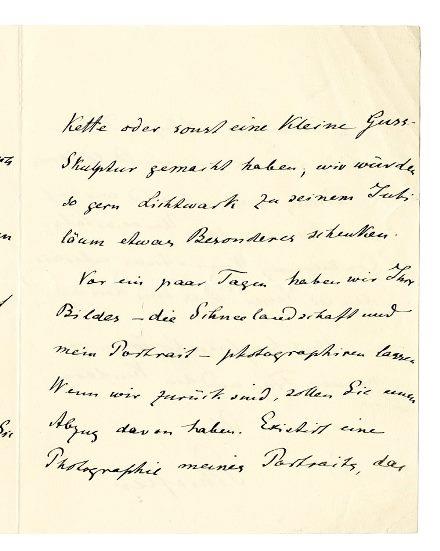 Kette oder sonst eine kleine Guss-
Skulptur gemacht haben, wir würden
so gern Lichtwark zu seinem Jubi-
läum etwas Besonderes schenken.
Vor ein paar Tagen haben wir Ihre
Bilder – die Schneelandschaft und
mein Portrait – photographiren lassen
Wenn wir zurück sind, sollen Sie einen
Abzug davon haben. Existirt eine
Photographie meines Portraits, das